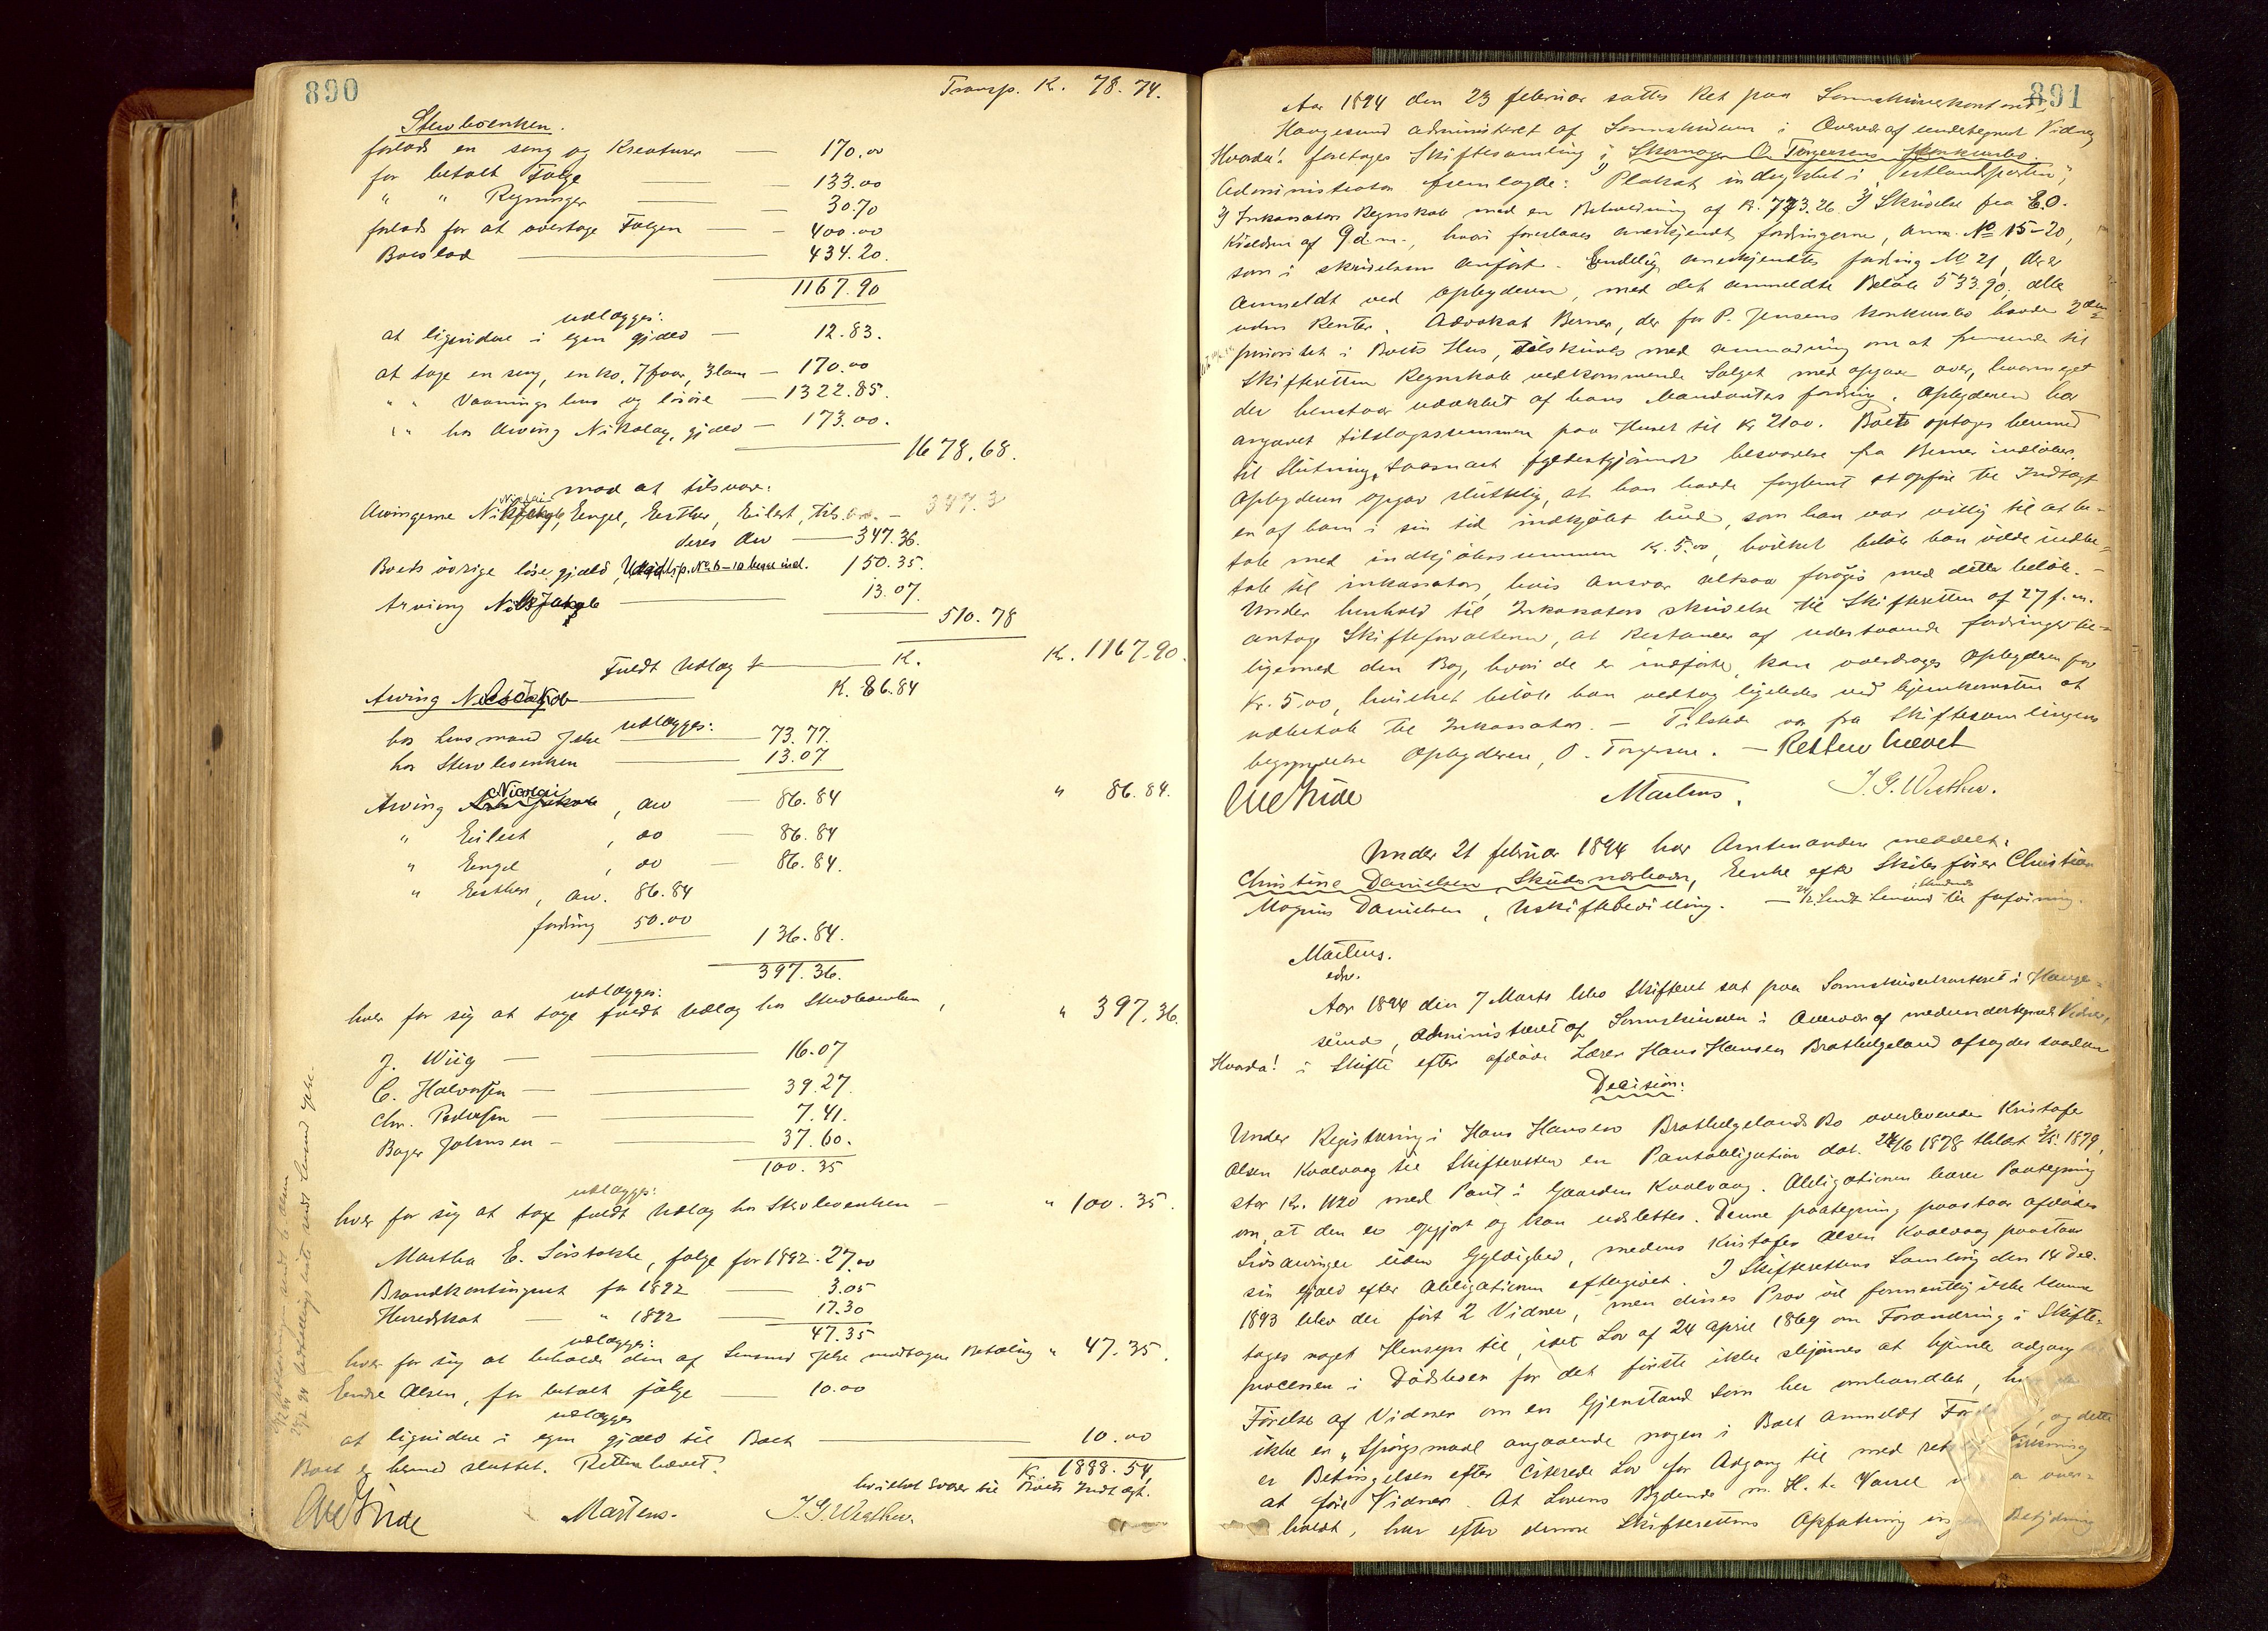 890
Transp. Kr. 78.74.
Stervboenken.
forlods en seng og Kreaturer — 170.00
for betalt Følge — 133.00
" " Regninger — 30.70
forlods for at overtage Følgen — 400.00
Boeslod — 434.20.
1167.90
udlægges:
at ligvidere i egen gjæld — 12.83.
at tage en seng, en ko, 7 faar, 3 lam — 170.00
" " Vaanings hus og løsøre — 1322.85.
" " hos Arving Nikolay, gjæld — 173.00.
1678.68.
mod at tilsvare:
Arvingerne Nicolai, Engel, Esther, Eilert, tils. — 347.3
deres Arv — 347.36.
Boets øvrige løse gjæld, No 6-10 incl. 150.35.
Arving Nils Jakob — 13.07.
510.78
Fuldt Udlæg — K. Kr. 1167.90.
Arving Nils Jakob — K. 86.84
udlægges:
hos Lensmand Jelse — 73.77.
hos Stervboenken — 13.07
" 86.84.
Arving Nicolai, arv — 86.84
" Eilert, do — 86.84
" Engel, do — 86.84.
" Esther, arv. 86.84
fordring 50.00
136.84.
397.36.
udlægges:
hver for sig at tage fuldt Udlæg hos Stervboenken, " 397.36.
J. Wiig — 16.07
C. Halvorsen — 39.27.
Chr. Pedersen — 7.41.
Bager Johnsen — 37.60.
100.35
udlægges:
hver for sig at tage fuldt Udlæg hos Stervboenken — " 100.35.
Martha E. Sørstokke, følge for 1892. 27.00
Brandkontingent for 1892 — 3.05
Herredskat — " 1892 — 17.30
47.35
udlægges:
hver for sig at beholde den af Lensmd Jelse modtagne Betaling " 47.35.
Endre Olsen, for betalt følge — 10.00
udlægges
at ligvidere i egen gjæld til Boet — 10.00
Boet er hermed sluttet. Retten hævet. Kr. 1888.54,
hvilket svarer til Boets Indtægt.
Martens. J. G. Wersthen.
891
Aar 1894 den 23 februar sattes Ret paa Sorenskriverkontoret i
Haugesund administreret af Sorenskriveren i Overvær af undertegnede Vidner
Hvorda! foretages Skiftesamling i Skomager O. Torgersens Konkursbo.
Administrator fremlagde: 1) Plakat indrykket i "Vestlandsposten",
2) Inkassators Regnskab med en Beholdning af Kr. 773.26. 3) Skrivelse fra E.O.
Kieldsen af 9 d.m., hvori foreslaaes anerkjendt fordringerne, anm. No 15-20,
som i skrivelsen anført. Endelig anerkjendtes fordring No 21, der er
anmeldt ved Opbyderen, med det anmeldte Beløb 533.90. alle
uden Renter. Advokat Berner, der for P. Jensens Konkursbo havde 2den
prioritet i Boets Hus, tilskrives med anmodning om at fremsende til
Skifteretten Regnskab vedkommende Salget med opgave over, hvormeget
der henstaar udækket af hans Mandanters fordring. Opbyderen har
angivet tilslagssummen paa Huset til Kr 2100. Boet optages hermed
til Slutning, saasnart fyldestgjørende besvarelse fra Berner indløber.
Opbyderen opgav sluttelig, at han havde forglemt at opføre til Indtægt
en af ham i sin tid indkjøbt hud, som han var villig til at be-
tale med indkjøbssummen Kr. 5.00, hvilket beløb han vilde indbe-
tale til inkassator, hvis ansvar altsaa forøges med dette beløb. —
Under henhold til Inkassators skrivelse til Skifteretten af 27 f.m.
antog Skifteforvalteren, at Restancer af udestaaende fordringer til-
ligemed den Bog, hvori de er indførte, kan overdrages Opbyderen for
Kr. 5.00, hvilket beløb han vedtog ligeledes ved hjemkomsten at
udbetale til Inkassator. — Tilstede var fra Skiftesamlingens
begyndelse Opbyderen, O. Torgersen. — Retten hævet
Martens. J. G. Wersthen.
Under 21 februar 1894 har Amtmanden meddelt:
Christine Danielsen Skudesneshavn, Enke efter Skibsfører Christian
Magnus Danielsen, Uskiftebevilling. — Sendt Lensmd i Skudenes til forføining.
Martens.
edsv.
Aar 1894 den 7 Marts blev Skifteret sat paa Sorenskriverkontoret i Hauge-
sund, administreret af Sorenskriveren i Overvær af medundertegnede Vidner,
Hvorda! i Skifte efter afdøde Lærer Hans Hansen Brathelgeland afsagdes saadan
Decision:
Under Registrering i Hans Hansen Brathelgelands Bo overleverede Kristofer
Olsen Kvalvaag til Skifteretten en Pantobligation dat. 24/6 1878 thlæst 3/5 1879,
stor Kr. 1120 med Pant i Gaarden Kvalvaag. Obligationen bærer Paategning
om, at den er opgjort og kan udslettes. Denne paategning paastaar afdødes
Livsarvinger uden Gyldighed, medens Kristofer Olsen Kvalvaag paastaar
sin gjæld efter Obligationen eftergivet. I Skifterettens Samling den 14 Dec.
1893 blev der ført 2 Vidner, men disses Prov vil formentlig ikke kunne
tages noget Hensyn til, idet Lov af 24 April 1869 om Forandring i Skifte-
processen i Dødsboer for det første ikke skjønnes at hjemle adgang
Førelse af Vidner om en Gjenstand som her omhandlet,
ikke en "Spørgsmaal angaaende nogen i Boet anmeldt Fordring", og dette
er Betingelsen efter citerede Lov for Adgang til med retslig Virkning
at føre Vidner. At Lovens Bydende m. H. t. Varsel over-
holdt, har efter denne Skifterettens Opfatning ingen Betydning